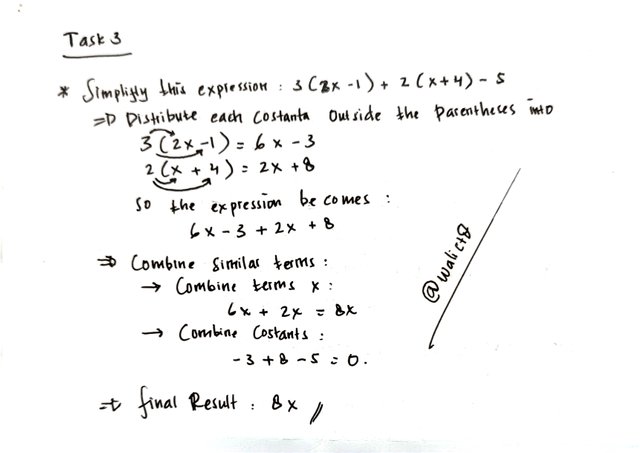 Task 3
* Simplify this expression : 3(2x-1) + 2(x+4) - 5
⇒ Distribute each Costanta Outside the Parentheses into
3(2x-1) = 6x - 3
2(x + 4) = 2x + 8
So the expression becomes :
6x - 3 + 2x + 8
⇒ Combine similar terms :
→ Combine terms x :
6x + 2x = 8x
→ Combine Costants :
-3 + 8 - 5 = 0.
⇒ final Result : 8x //
@walict8